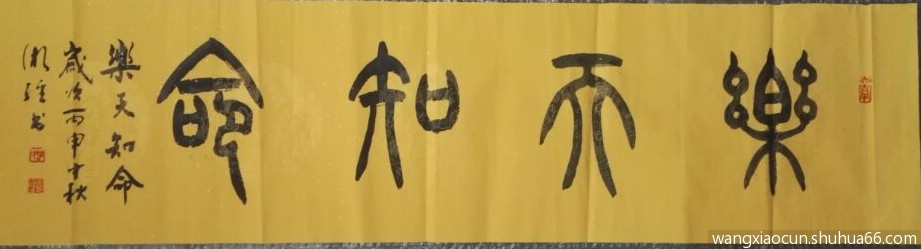 樂天知命
樂天知命
歲次丙申中秋
湘碒书
wangxiaocun.shuhua66.com